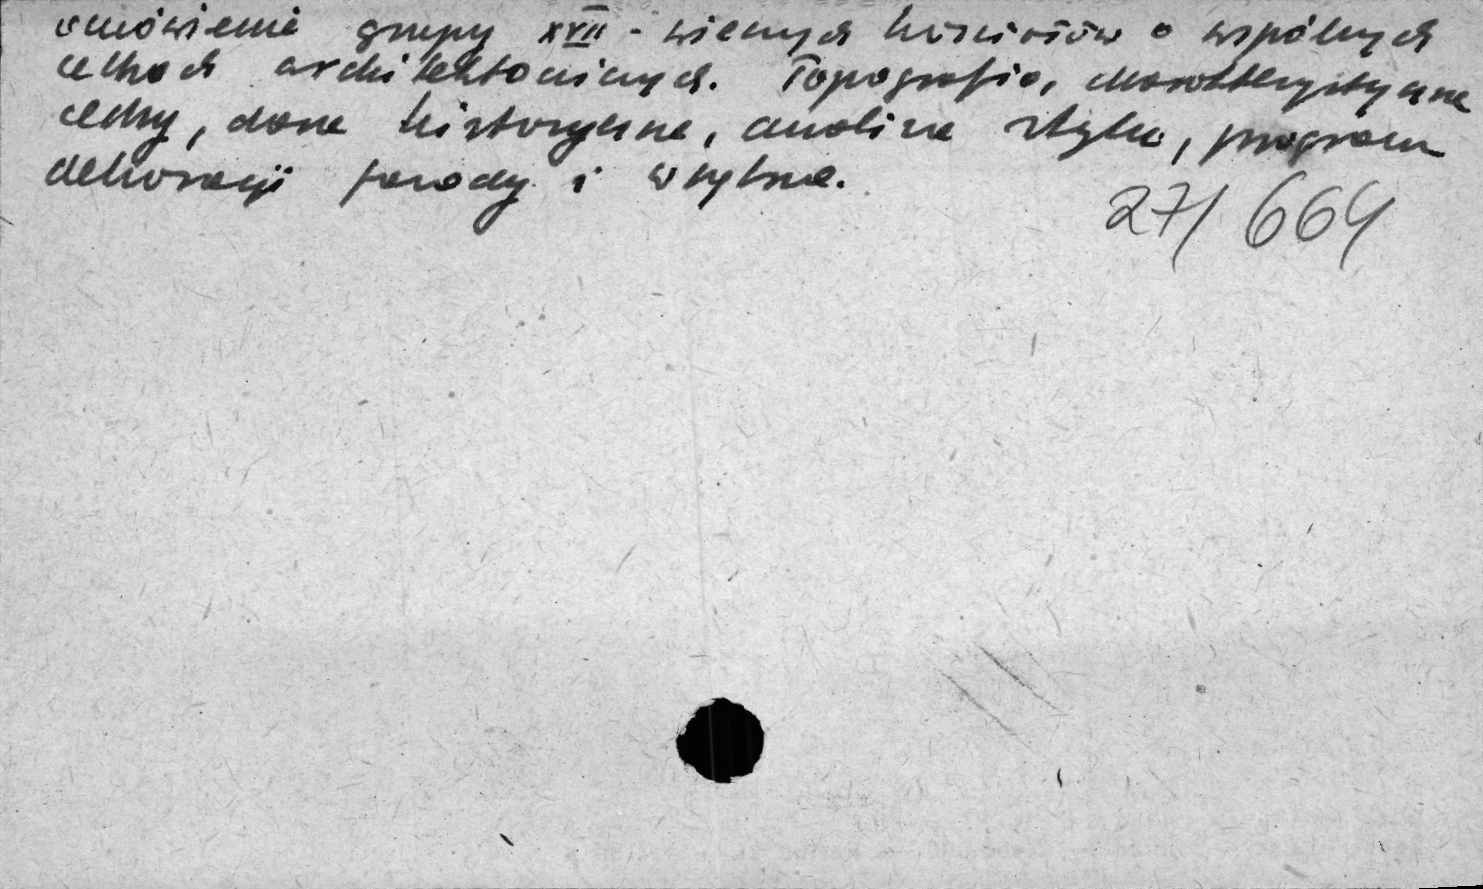 omówienie grupy XVII-wiecznych kościołów o wspólnych
cechach architektonicznych. Topografia, charakterystyczne
cechy, dane historyczne, analiza stylu, program
dekoracji fasady i wnętrza.
27/664